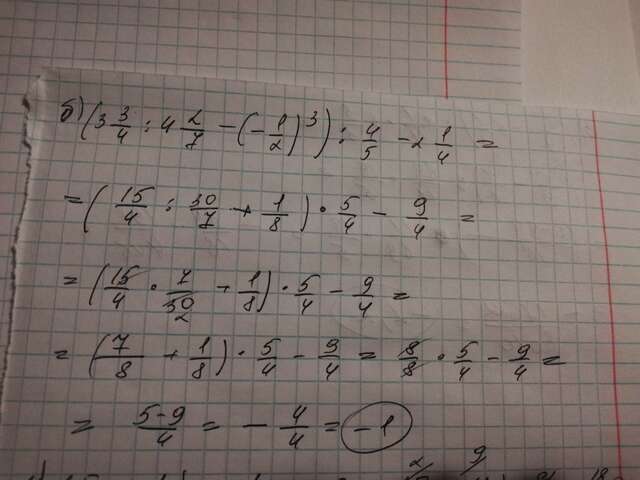 б) (3 3/4 : 4 2/7 - (-1/2)^3) : 4/5 - 2 1/4 =
= (15/4 : 30/7 + 1/8) · 5/4 - 9/4 =
= (15/4 · 7/30 + 1/8) · 5/4 - 9/4 =
2
= (7/8 + 1/8) · 5/4 - 9/4 = 8/8 · 5/4 - 9/4 =
= 5-9/4 = - 4/4 = -1